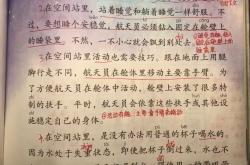 2.在空间站里，站着睡觉和躺着睡觉一样舒服。不过，要想睡个安稳觉，航天员必须钻入固定在舱壁上的睡袋里。不然，一不小心就会飘到别处去。
3.在空间站里活动也需要技巧。跟在地面上用腿脚行走不同，航天员在舱体里移动主要靠手臂。为了方便航天员在舱体中活动，舱壁上安装了很多特制的扶手。平时，航天员会依靠这些扶手或其他设施稳定自己的身体。
4.在空间站里，是没有办法用普通的杯子喝水的。因为水处于失重状态，即使把杯子倒过来，水也